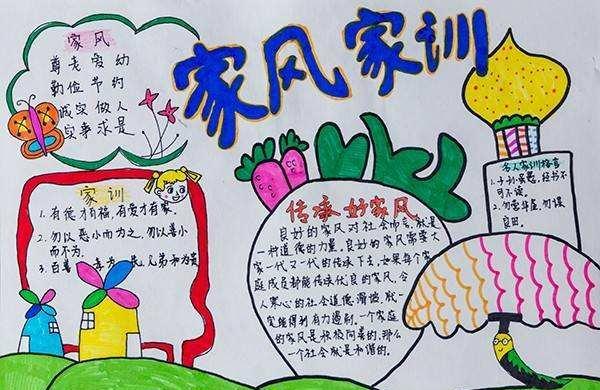 家风家训
家风
尊老爱幼
勤俭节约
诚实做人
实事求是
家训
1. 有德才有福,有爱才有家。
2. 勿以恶小而为之,勿以善小
而不为.
3. 百善 孝为先,兄弟和为贵
传承好家风
良好的家风对社会而言,就是
一种道德的力量。良好的家风需要大
家一代又一代的传承下去.如果每个家
庭成员都能传承优良的家风,令
人寒心的社会道德滑坡,就一
定能得到有力遏制.一个家庭
的家风是积极向善的,那么
一个社会就是和谐的.
名人家训格言
1. 子孙虽愚,经书不
可不读.
2. 勿营华屋,勿谋
良田.